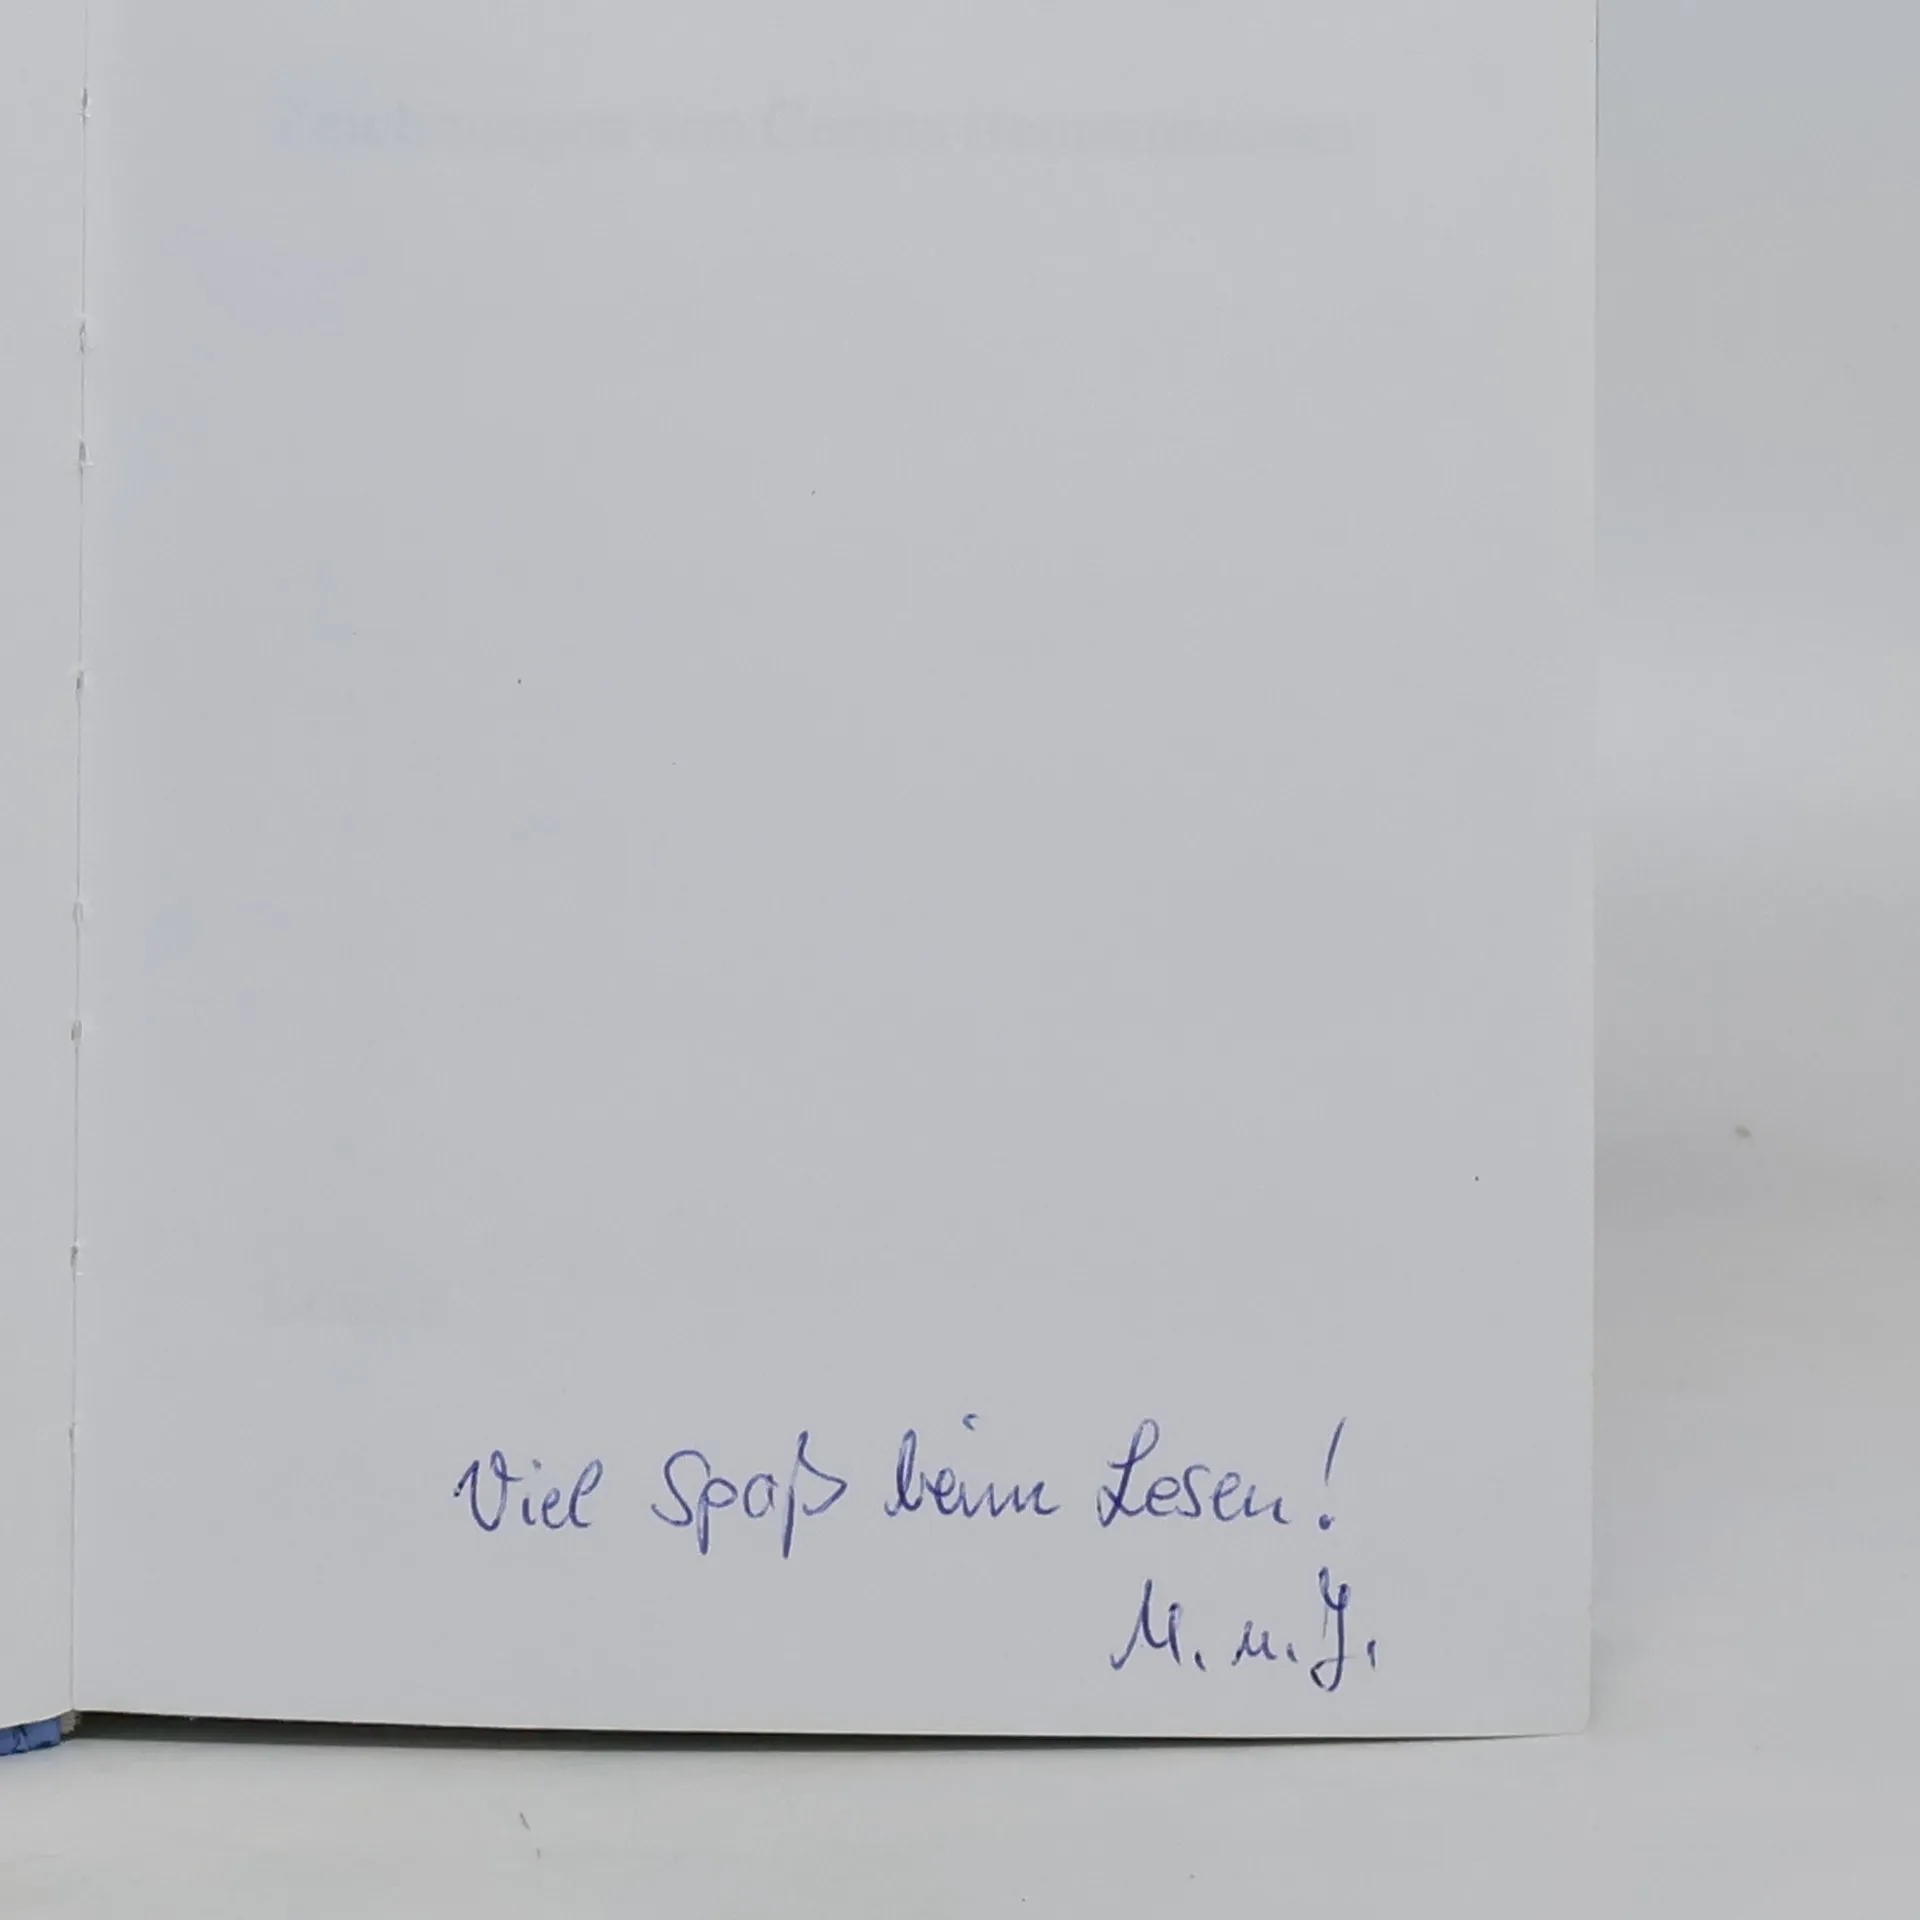 Viel Spaß beim Lesen!
M. u. J.